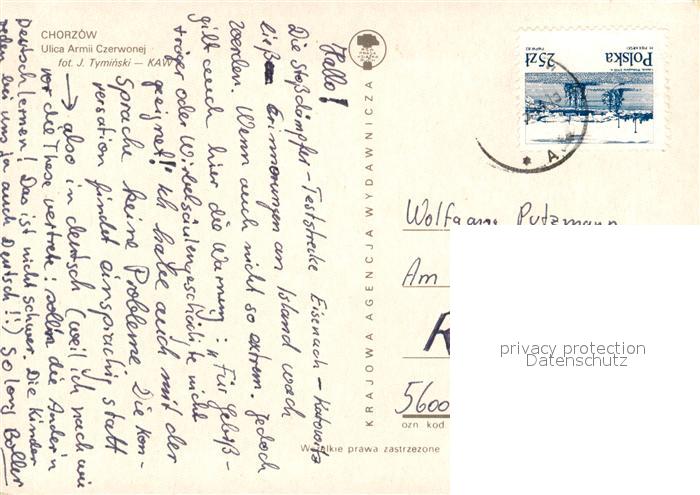 CHORZÓW
Ulica Armii Czerwonej
fot. J. Tymiński — KAW
Hallo!
Die Stoßdämpfer-Teststrecke Eisenach – Katowitz
ließen Erinnerungen an Island wach
werden. Wenn auch nicht so extrem. Jedoch
gilt auch hier die Warnung: "Für Gebiß-
träger oder Wirbelsäulengeschädigte nicht
geeignet!" Ich habe auch mit der
Sprache keine Probleme. Die Kon-
versation findet einsprachig statt
→ also in deutsch (weil ich nach wie
vor die These vertrete: soll'n die Ander'n
Deutsch lernen! Das ist nicht schwer. Die Kinder
reden bei uns ja auch Deutsch!!) So long Boller
KRAJOWA AGENCJA WYDAWNICZA
Polska
25 zł
Wolfgang Putzmann
Am
5600
ozn kod
Wszelkie prawa zastrzeżone
privacy protection
Datenschutz